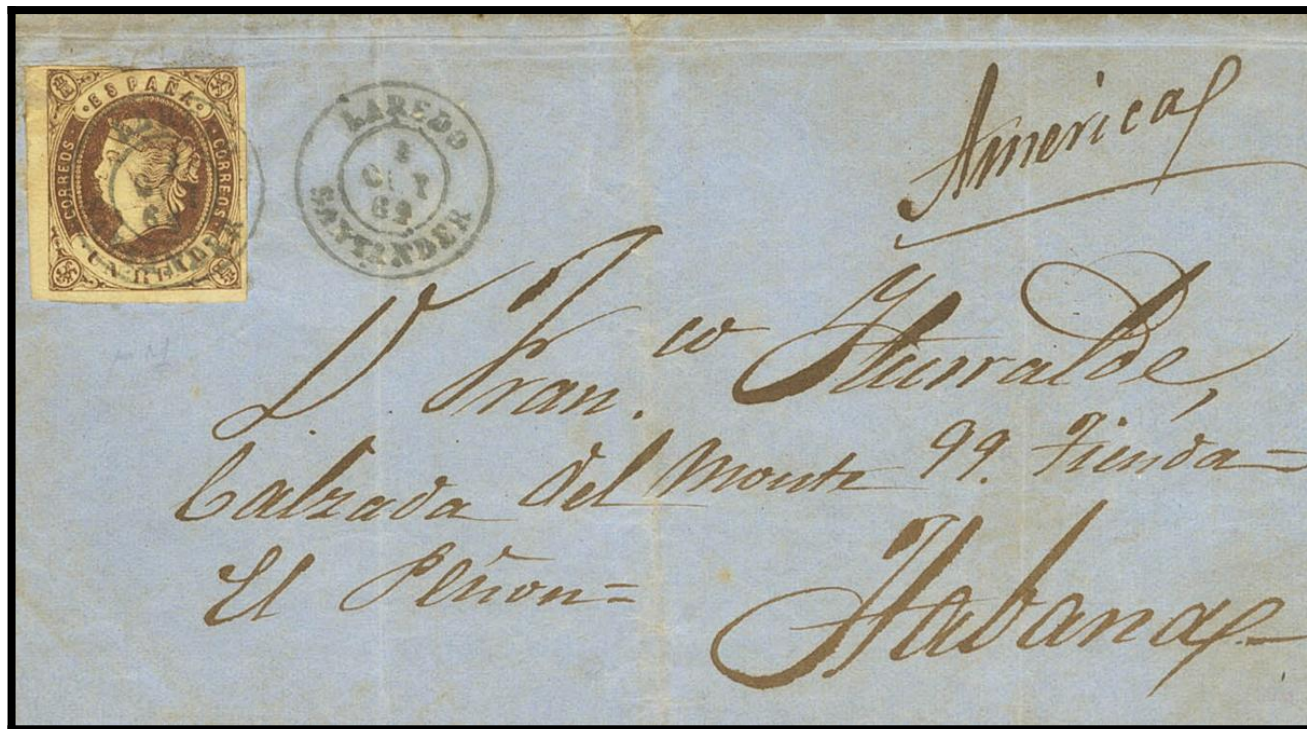 ·ESPAÑA·
CORREOS CORREOS
LAREDO
OCT
62
SANTANDER
America
D Fran.co Iturralde,
Calzada del Monte 99. Tienda=
El Peñon=
Habana